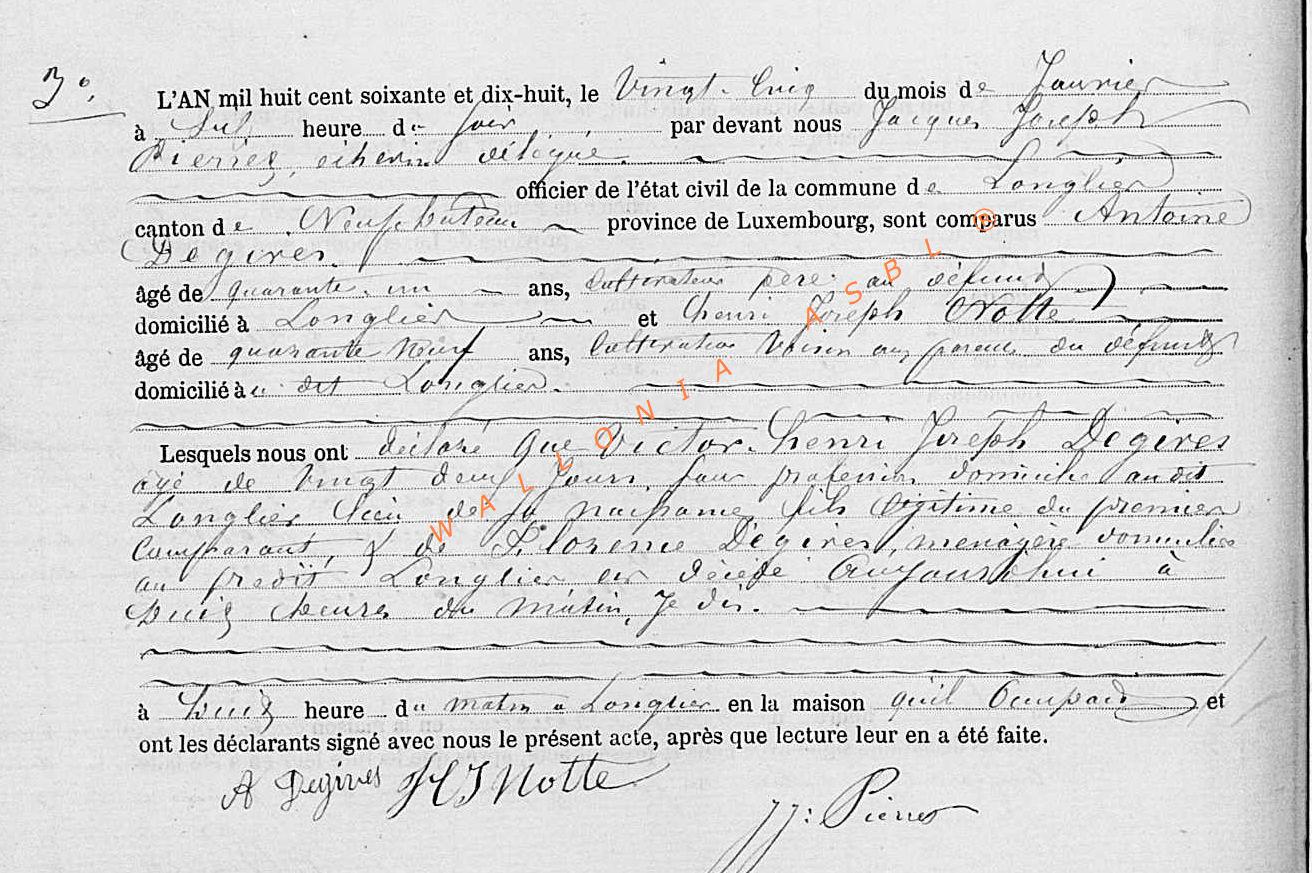 3°.
L'AN mil huit cent soixante et dix-huit, le Vingt-Cinq du mois de Janvier
à Sept heure du soir par devant nous Jacques Joseph
Pierret, échevin délégué.
officier de l'état civil de la commune de Longlier
canton de Neufchateau province de Luxembourg, sont comparus Antoine
Degives.
âgé de quarante-un ans, cultivateur père au défunt
domicilié à Longlier et Henri Joseph Notte
âgé de quarante neuf ans, Cultivateur Voisin aux parents du défunt
domicilié à u dit Longlier.
Lesquels nous ont déclaré que Victor-Henri Joseph Degives
âgé de vingt deux jours, sans profession domicilié audit
Longlier lieu de sa naissance, fils légitime du premier
Comparant, & de Florence Degives, ménagère domiciliée
au predit Longlier est décédé Aujourd'hui à
huit heures du matin, Je dis.
à huit heure du matin à Longlier en la maison qu'il occupait et
ont les déclarants signé avec nous le présent acte, après que lecture leur en a été faite.
A Degives HJ Notte
JJ: Pierret
WALLONIA ASBL ®